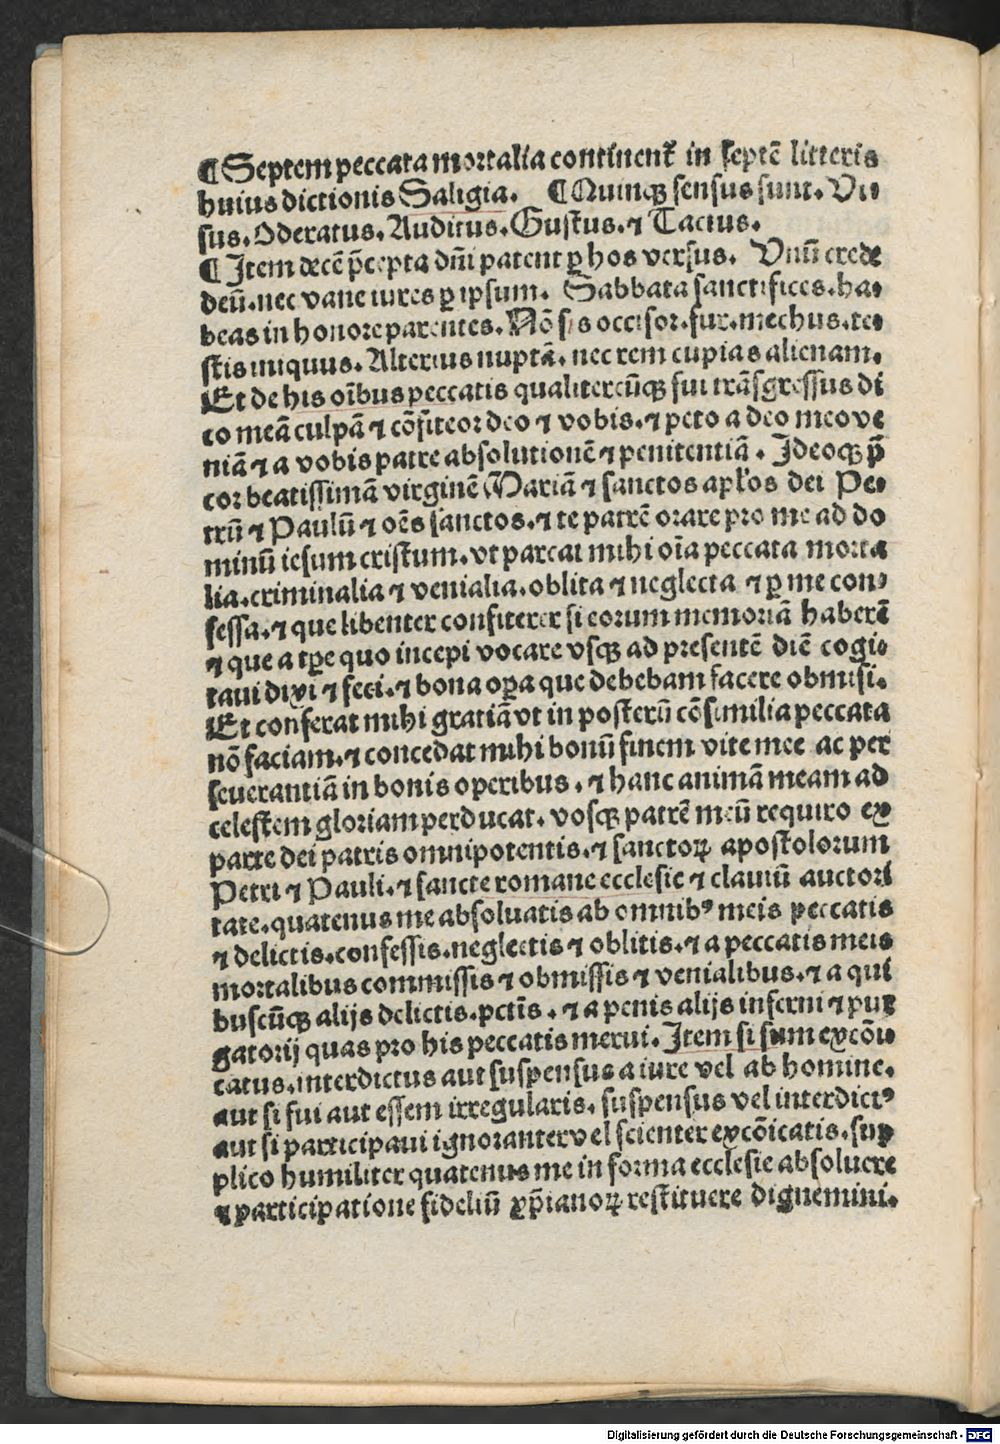 ¶ Septem peccata mortalia continent᷑ in septē litteris
huius dictionis Saligia. ¶ Quinqꝫ sensus sunt. Vi⸗
sus. Oderatus. Auditus. Gustus. ⁊ Tactus.
¶ Item decē p̄cepta dn̄i patent ꝑ hos versus. Vnū crede
deū. nec vane iures ꝑ ipsum. Sabbata sanctifices. ha⸗
beas in honore parentes. Nō sis occisor. fur. mechus. te⸗
stis iniquus. Alterius nuptā. nec rem cupias alienam.
Et de his oībus peccatis qualitercūqꝫ fui trāsgressus di
co meā culpā ⁊ cōfiteor deo ⁊ vobis. ⁊ peto a deo meo ve
niā ⁊ a vobis patre absolutionē ⁊ penitentiā. Ideoqꝫ p̄
cor beatissimā virginē Mariā ⁊ sanctos apl'os dei Pe⸗
trū ⁊ Paulū ⁊ oēs sanctos. ⁊ te patrē orare pro me ad do
minū iesum cristum. vt parcat mihi oīa peccata morta
lia. criminalia ⁊ venialia. oblita ⁊ neglecta ⁊ ꝑ me con⸗
fessa. ⁊ que libenter confiterer si eorum memoriā haberē
⁊ que a tꝑe quo incepi vocare vsqꝫ ad presentē diē cogi⸗
taui dixi ⁊ feci. ⁊ bona oꝑa que debebam facere obmisi.
Et conferat mihi gratiā vt in posterū cōsimilia peccata
nō faciam. ⁊ concedat mihi bonū finem vite mee ac per
seuerantiā in bonis operibus. ⁊ hanc animā meam ad
celestem gloriam perducat. vosqꝫ patrē meū requiro ex
parte dei patris omnipotentis. ⁊ sanctoꝝ apostolorum
Petri ⁊ Pauli. ⁊ sancte romane ecclesie ⁊ clauiū auctori
tate. quatenus me absoluatis ab omnibꝰ meis peccatis
⁊ delictis. confessis. neglectis ⁊ oblitis. ⁊ a peccatis meis
mortalibus commissis ⁊ obmissis ⁊ venialibus. ⁊ a qui
buscūqꝫ alijs delictis. pctīs. ⁊ a penis alijs inferni ⁊ pur
gatorij quas pro his peccatis merui. Item si sum excōi⸗
catus. interdictus aut suspensus a iure vel ab homine.
aut si fui aut essem irregularis. suspensus vel interdictꝰ
aut si participaui ignoranter vel scienter excōicatis. sup
plico humiliter quatenus me in forma ecclesie absoluere
⁊ participatione fideliū xp̄ianoꝝ restituere dignemini.
Digitalisierung gefördert durch die Deutsche Forschungsgemeinschaft - DFG